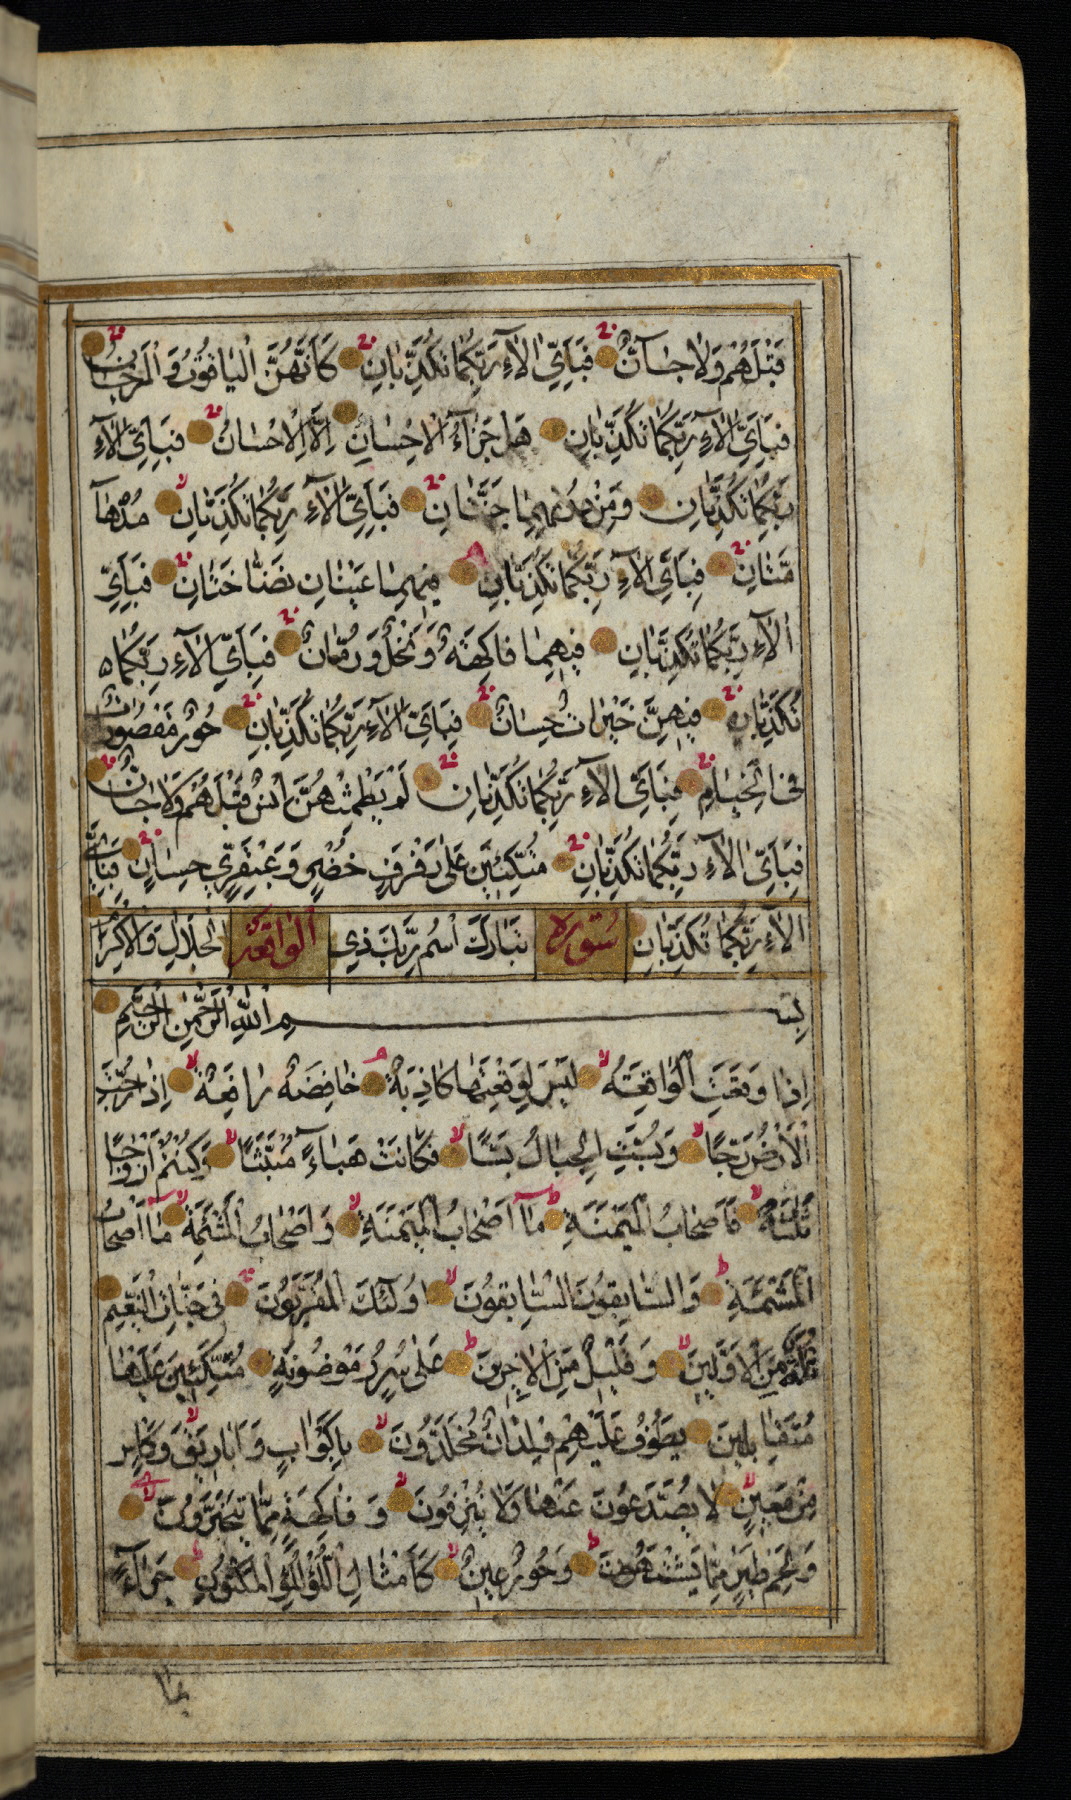 قَبْلَهُمْ وَلَا جَانٌّ فَبِأَيِّ اٰلَآءِ رَبِّكُمَا تُكَذِّبَانِ كَأَنَّهُنَّ الْيَاقُوتُ وَالْمَرْجَانُ
فَبِأَيِّ اٰلَآءِ رَبِّكُمَا تُكَذِّبَانِ هَلْ جَزَآءُ الْاِحْسَانِ اِلَّا الْاِحْسَانُ فَبِأَيِّ اٰلَآءِ
رَبِّكُمَا تُكَذِّبَانِ وَمِنْ دُونِهِمَا جَنَّتَانِ فَبِأَيِّ اٰلَآءِ رَبِّكُمَا تُكَذِّبَانِ مُدْهَآ
مَّتَانِ فَبِأَيِّ اٰلَآءِ رَبِّكُمَا تُكَذِّبَانِ فِيهِمَا عَيْنَانِ نَضَّاخَتَانِ فَبِأَيِّ
اٰلَآءِ رَبِّكُمَا تُكَذِّبَانِ فِيهِمَا فَاكِهَةٌ وَنَخْلٌ وَرُمَّانٌ فَبِأَيِّ اٰلَآءِ رَبِّكُمَا
تُكَذِّبَانِ فِيهِنَّ خَيْرَاتٌ حِسَانٌ فَبِأَيِّ اٰلَآءِ رَبِّكُمَا تُكَذِّبَانِ حُورٌ مَقْصُورَاتٌ
فِي الْخِيَامِ فَبِأَيِّ اٰلَآءِ رَبِّكُمَا تُكَذِّبَانِ لَمْ يَطْمِثْهُنَّ اِنْسٌ قَبْلَهُمْ وَلَا جَانٌّ
فَبِأَيِّ اٰلَآءِ رَبِّكُمَا تُكَذِّبَانِ مُتَّكِئِينَ عَلٰى رَفْرَفٍ خُضْرٍ وَعَبْقَرِيٍّ حِسَانٍ فَبِأَيِّ
اٰلَآءِ رَبِّكُمَا تُكَذِّبَانِ سُورة تَبَارَكَ اسْمُ رَبِّكَ ذِي الواقعة الْجَلَالِ وَالْاِكْرَامِ
بِسْمِ اللهِ الرَّحْمٰنِ الرَّحِيمِ
اِذَا وَقَعَتِ الْوَاقِعَةُ لَيْسَ لِوَقْعَتِهَا كَاذِبَةٌ خَافِضَةٌ رَافِعَةٌ اِذَا رُجَّتِ
الْاَرْضُ رَجًّا وَبُسَّتِ الْجِبَالُ بَسًّا فَكَانَتْ هَبَآءً مُنْبَثًّا وَكُنْتُمْ اَزْوَاجًا
ثَلٰثَةً فَاَصْحَابُ الْمَيْمَنَةِ مَآ اَصْحَابُ الْمَيْمَنَةِ وَاَصْحَابُ الْمَشْئَمَةِ مَآ اَصْحَابُ
الْمَشْئَمَةِ وَالسَّابِقُونَ السَّابِقُونَ اُولٰئِكَ الْمُقَرَّبُونَ فِي جَنَّاتِ النَّعِيمِ
ثُلَّةٌ مِنَ الْاَوَّلِينَ وَقَلِيلٌ مِنَ الْاٰخِرِينَ عَلٰى سُرُرٍ مَوْضُونَةٍ مُتَّكِئِينَ عَلَيْهَا
مُتَقَابِلِينَ يَطُوفُ عَلَيْهِمْ وِلْدَانٌ مُخَلَّدُونَ بِاَكْوَابٍ وَاَبَارِيقَ وَكَأْسٍ
مِنْ مَعِينٍ لَا يُصَدَّعُونَ عَنْهَا وَلَا يُنْزِفُونَ وَفَاكِهَةٍ مِمَّا يَتَخَيَّرُونَ
وَلَحْمِ طَيْرٍ مِمَّا يَشْتَهُونَ وَحُورٌ عِينٌ كَاَمْثَالِ اللُّؤْلُؤِ الْمَكْنُونِ جَزَآءً
بما